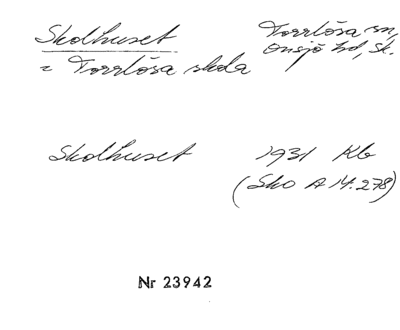 Skolhuset Torrlösa sn,
= Torrlösa skola Onsjö hd, Sk.
Skolhuset 1931 Kb
(Sko A 14:278)
Nr 23942